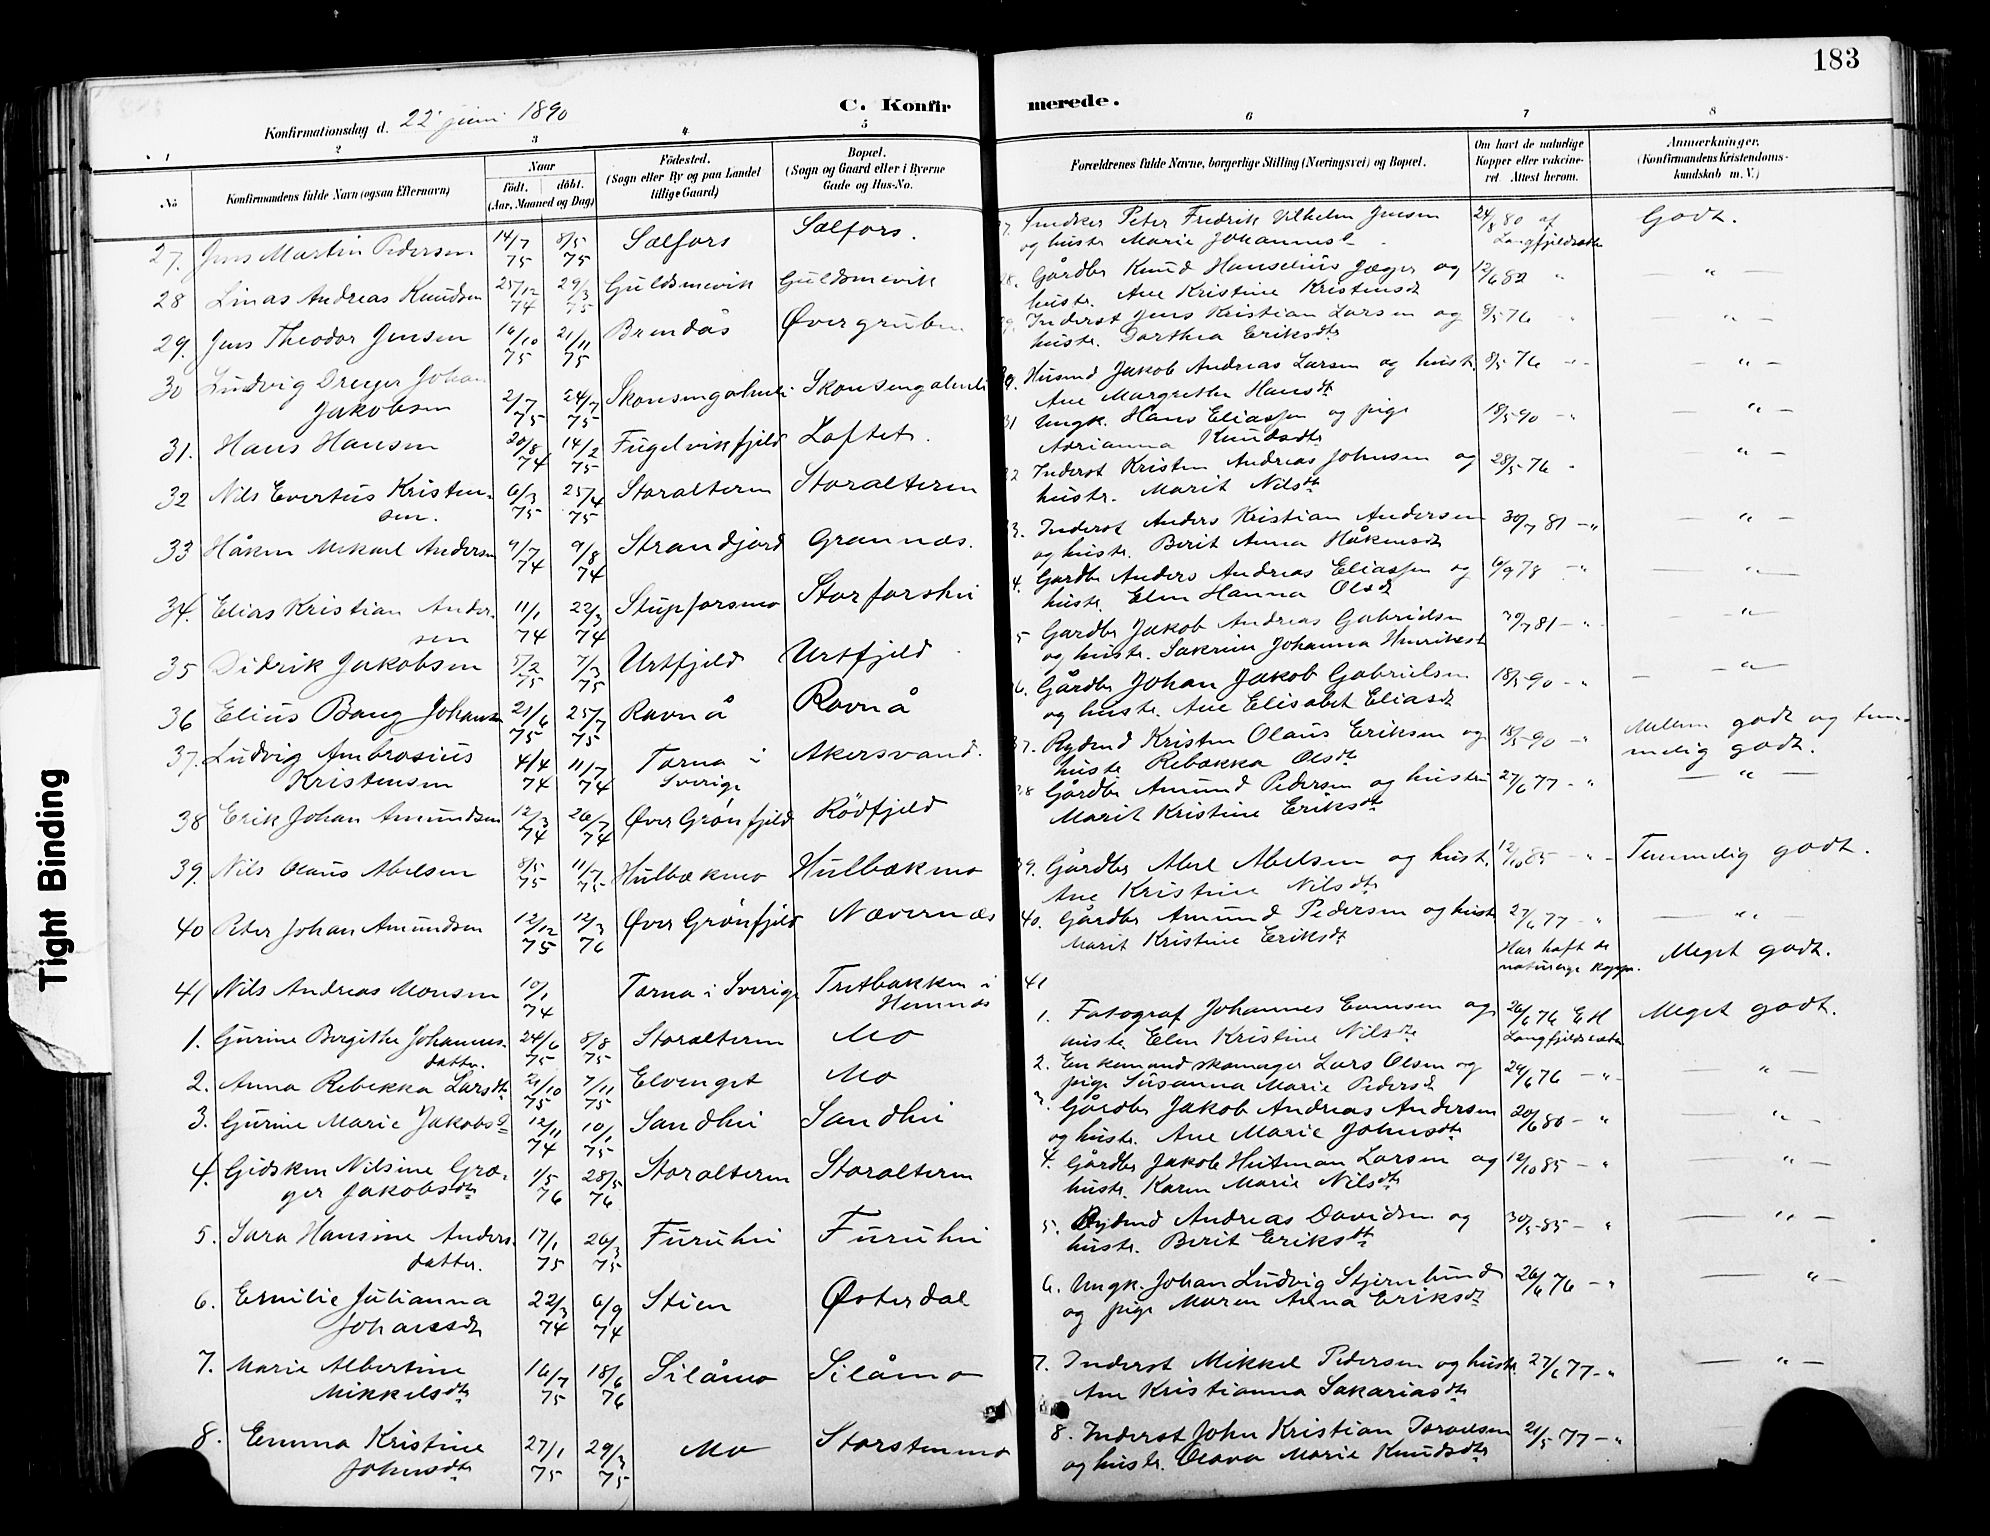 183
C. Konfirmerede.
Konfirmationsdag d. 22 juni 1890
1 2 3 4 5 6 7 8
No
Konfirmandens fulde Navn (ogsaa Efternavn)
Naar
födt. döbt.
(Aar, Maaned og Dag)
Födested.
(Sogn eller By og paa Landet
tillige Gaard)
Bopæl.
(Sogn og Gaard eller i Byerne
Gade og Hus-No.
Forældrenes fulde Navne, borgerlige Stilling (Næringsvei) og Bopæl.
Om havt de naturlige
Kopper eller vakcine-
ret Attest herom.
Anmærkninger.
(Konfirmandens Kristendoms-
kundskab m. V.)
27. Jens Martin Pedersen 14/7 75 8/5 75 Sælfors Sælfors.
Peter Fredrik Vilhelm Jensen 24/8 80 af Godt.
og hustr Marie Johannesd Langfjeldsæth
28 Linas Andreas Knudsen 25/12 74 29/3 75 Guldsmevik Guldsmevik
28. Gårdbr Knud Hanselius Jæger og 12/6 82 " — " —
hustr. Ane Kristine Kristensdt
29. Jens Theodor Jensen 16/10 75 21/11 75 Brendås Øvergruben
Inderst Jens Kristian Larsen og 9/5 76 — " —
hustr. Dorthea Eriksdtr
30 Ludvig Dreyer Johan
Jakobsen 2/7 75 24/7 75 Skonsengahnli Skonsengahnli
Husmd Jakob Andreas Larsen og hustr. 8/5 76 — " —
Ane Margrethe Hansdt
31. Hans Hansen 20/8 74 14/2 75 Fugelvikfjeld Loftet.
31 Ungk. Hans Eliassen og pige 18/5 90 — " —
Adrianna Knudsdtr
32 Nils Evertus Kristen-
sen. 6/3 75 25/4 75 Storalteren Storalteren
32 Inderst Kristen Andreas Johnsen og 28/5 76 — " —
hustr. Marit Nilsdtr
33 Håken Mikael Andersen 9/7 74 9/8 74 Strandjord Grannæs.
3. Inderst Anders Kristian Andersen 30/7 81 — " — " —
og hustr. Berit Anna Håkensdt
34. Elias Kristian Ander-
sen 11/1 74 22/3 74 Stupforsmo Storforshei
4. Gardbr Anders Andreas Eliassen og 6/9 78 — " —
hustr. Elen Hanna Olsdt
35 Didrik Jakobsen 5/2 75 7/3 75 Urtfjeld Urtfjeld
5 Gardbr Jakob Andreas Gabrielsen 30/7 81 — " — " —
og hustr. Sakrine Johanna Henriksdt
36 Elius Bang Johansen 21/6 75 25/7 75 Ravnå Ravnå
6. Gårdbr Johan Jakob Gabrielsen 18/5 90 — " — " —
og hustr. Ane Elisabet Eliasdt
37. Ludvig Ambrosius
Kristensen 4/4 74 11/7 74 Tärna i
Sverige Akersvand.
37. Rydmd Kristen Olaus Eriksen og 18/5 90 " Mellem godt og tem-
hustr Rebækka Olsdtr melig godt.
38 Erik Johan Amundsen 12/3 74 26/7 74 Øver Grönfjeld Rödfjeld
38 Gårdbr Amund Pedersen og hustru 27/6 77 — " — " —
Marit Kristine Eriksdtr
39. Nils Olaus Abelsen 8/5 75 11/7 75 Hulbækmo Hulbækmo
39. Gårdbr Abel Abelsen og hust. 12/10 85 — " Temmelig godt.
Ane Kristine Nilsdtr
40 Peter Johan Amundsen 12/12 75 12/3 76 Øver Grönfjeld Nævernæs
40. Gårdbr Amund Pedersen og hustr 27/6 77 — " — " —
Marit Kristine Eriksdt
41 Nils Andreas Monsen 10/1 74 Tärna i Sverige Tretbakken i
Hemnæs
41 Har haft de
naturlige kopper. Meget godt.
1. Gurine Bergithe Johannes-
datter. 24/6 75 8/8 75 Storalteren Mo
1. Fotograf Johannes Evensen og 26/6 76 E H Meget godt.
hustr. Elen Kristine Nilsdtr Langfjeldsæter
2. Anna Rebekka Larsdtr 21/10 75 7/11 75 Elvenget Mo
2. Enkemand skomager Lars Olsen og 24/6 76 — " — " —
pige Susanna Marie Pedersdt
3. Gurine Marie Jakobsd 12/11 74 10/1 75 Sandhei Sandhei
3. Gårdbr Jakob Andreas Andersen 20/6 80 — " — " —
og hustr. Ane Marie Johnsdtr
4. Gidsken Nilsine Græ-
ger Jakobsdtr 1/5 76 28/5 76 Storalteren Storalteren
4. Gårdbr Jakob Hutman Larsen og 12/10 85 — " — " —
hustr. Karen Marie Nilsdtr
5. Sara Hansine Anders-
datter. 17/1 75 26/3 75 Furuhei Furuhei
5. Rydmd Andreas Davidsen og 30/5 85 — " — " —
hustr. Berit Eriksdtr
6. Emilie Julianna
Johansdt 22/3 74 6/9 74 Stien Østerdal
6. Ungk. Johan Ludvig Stjernlund 26/6 76 — " — " —
og pige Maren Anna Eriksdt
7. Marie Albertine
Mikkelsdtr 16/7 75 18/6 76 Silåmo Silåmo
7. Inderst Mikkel Pedersen og hustr 27/6 77 — " — " —
Ane Kristianna Sakariasdtr
8. Emma Kristine
Johnsdtr 27/1 75 29/3 75 Mo Storstenmo
8. Inderst John Kristian Toraldsen 21/5 77 — " — " —
og hustr. Olava Marie Knudsdtr
Tight Binding